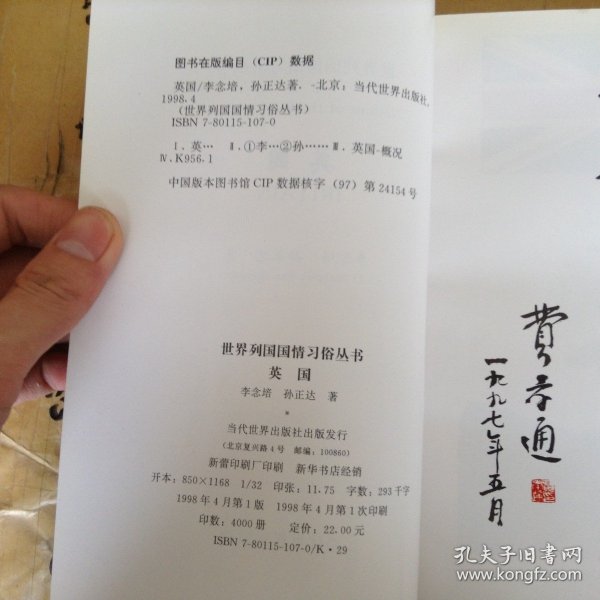 图书在版编目（CIP）数据
英国/李念培，孙正达著．-北京：当代世界出版社，
1998.4
（世界列国国情习俗丛书）
ISBN 7-80115-107-0
Ⅰ．英… Ⅱ．①李…②孙…… Ⅲ．英国-概况
Ⅳ．K956.1
中国版本图书馆 CIP 数据核字（97）第 24154 号
世界列国国情习俗丛书
英国
李念培 孙正达 著
*
当代世界出版社出版发行
（北京复兴路4号 邮编：100860）
新蕾印刷厂印刷 新华书店经销
开本：850×1168 1/32 印张：11.75 字数：293千字
1998年4月第1版 1998年4月第1次印刷
印数：4000册 定价：22.00元
ISBN 7-80115-107-0/K·29
费孝通
一九九七年五月
孔夫子旧书网
www.kongfz.com